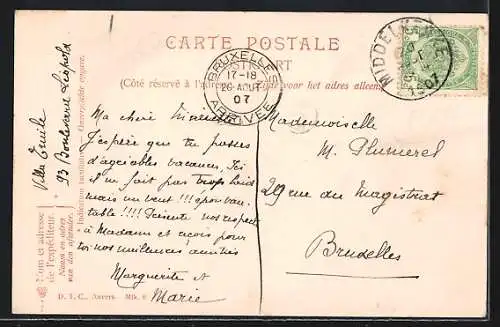 CARTE POSTALE
POSTKAART
(Côté réservé à l'adresse) (Zijde voor het adres alleen)
BRUXELLES
17-18
26 AOUT
07
ARRIVÉE
MIDDELKERKE
07
Villa Emile
93 Boulevard Léopold
Nom et adresse
de l'expéditeur.
Naam en adres
van den afzender.
Ma chère
J'espère que tu passes
d'agréables vacances, Ici
il ne fait pas trop froid
mais un vent !!! épouvan-
table !!!! Présente nos respects
à Madame et reçois pour
toi nos meilleures amitiés
Marguerite et
Marie
Mademoiselle
M. Plumerel
29 rue du Magistrat
Bruxelles
D. T. C., ANVERS Mlk. 6